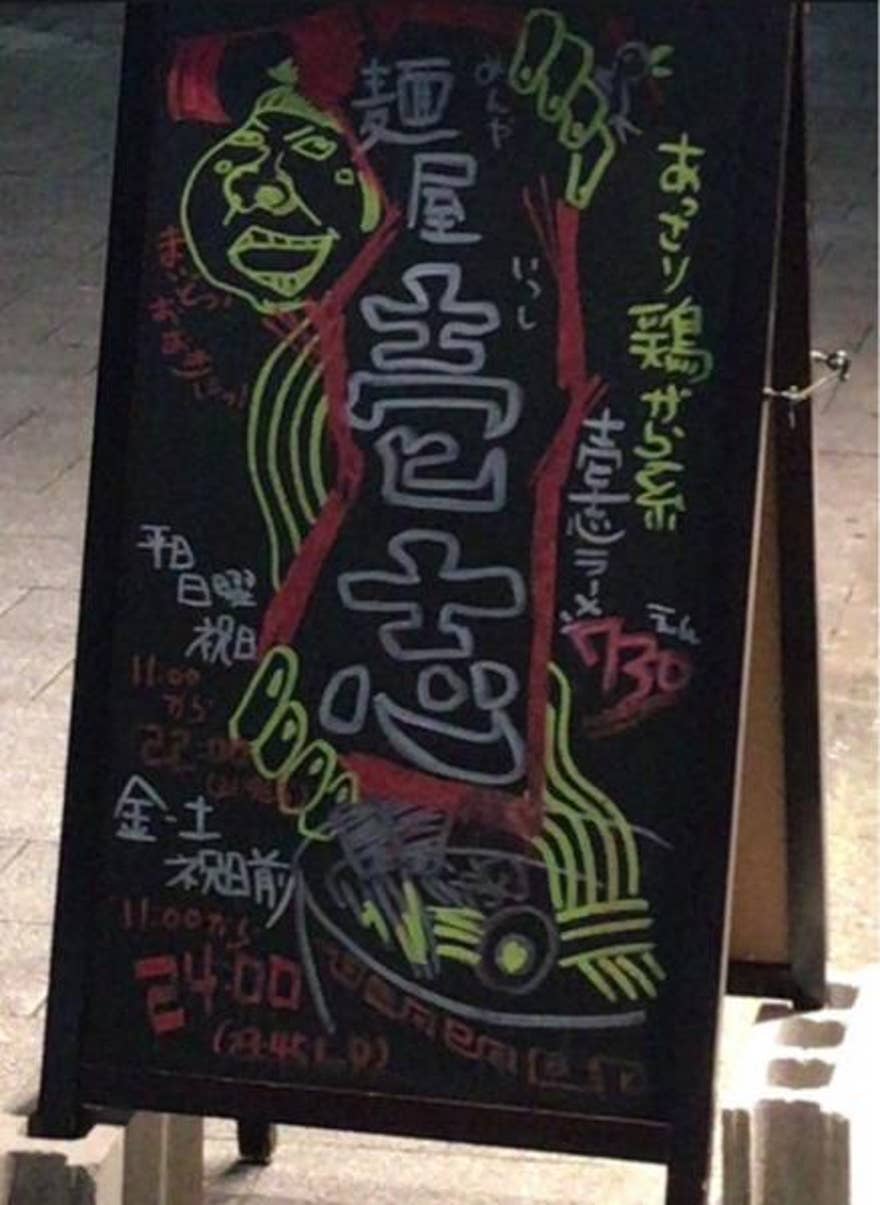 あっさり鶏がら系
壱志ラーメン
730えん
めんや
麺屋
いっし
壱志
まいどっ!
おおきにっ!
平日
日曜
祝日
11:00
から
22:00
金・土
祝日前
11:00から
24:00
(23:45L.O)